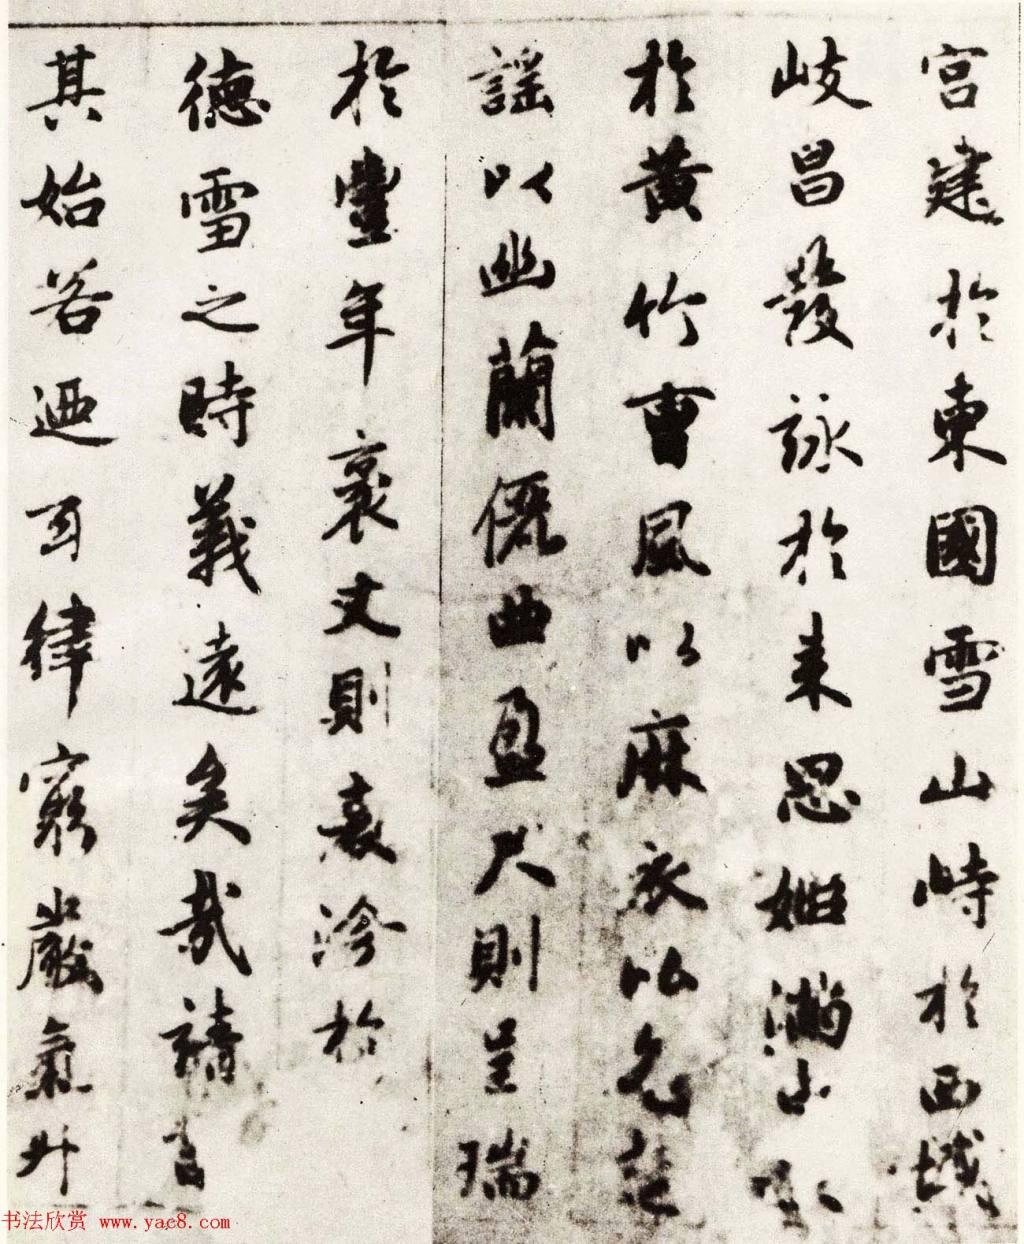 宮建於東國雪山峙於西域
岐昌發詠於来思姬滿申
於黃竹曹風以麻衣比色楚
謠以幽蘭儷曲盈尺則呈瑞
於豐年袤丈則表沴於
德雪之時義遠矣哉請言
其始若迺玄律窮嚴氣升
书法欣赏 www.yac8.com